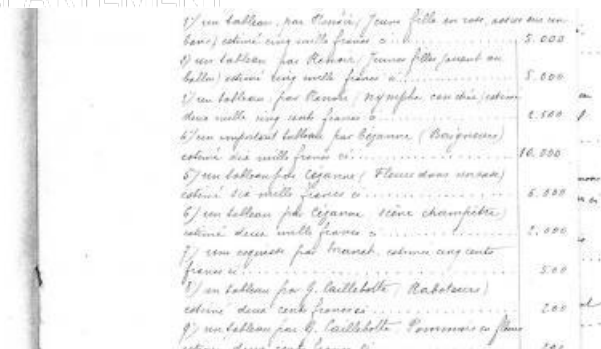 1) un tableau, par Renoir (Jeune fille en rose, assise sur un
banc) estimé cinq mille francs ci 5.000
2) un tableau par Renoir (Jeunes filles jouant au
ballon) estimé cinq mille francs ci 5.000
3) un tableau par Renoir (Nymphe couchée) estimé
deux mille cinq cents francs ci 2.500
4) un important tableau par Cézanne (Baigneurs)
estimé dix mille francs ci 10.000
5) un tableau par Cézanne (Fleurs dans un vase)
estimé six mille francs ci 6.000
6) un tableau par Cézanne, scène champêtre)
estimé deux mille francs ci 2.000
7) une esquisse par Manet, estimée cinq cents
francs ci 500
8) un tableau par G. Caillebotte (Raboteurs)
estimé deux cents francs ci 200
9) un tableau par G. Caillebotte Pommiers en fleurs
estimé deux cents francs ci 200